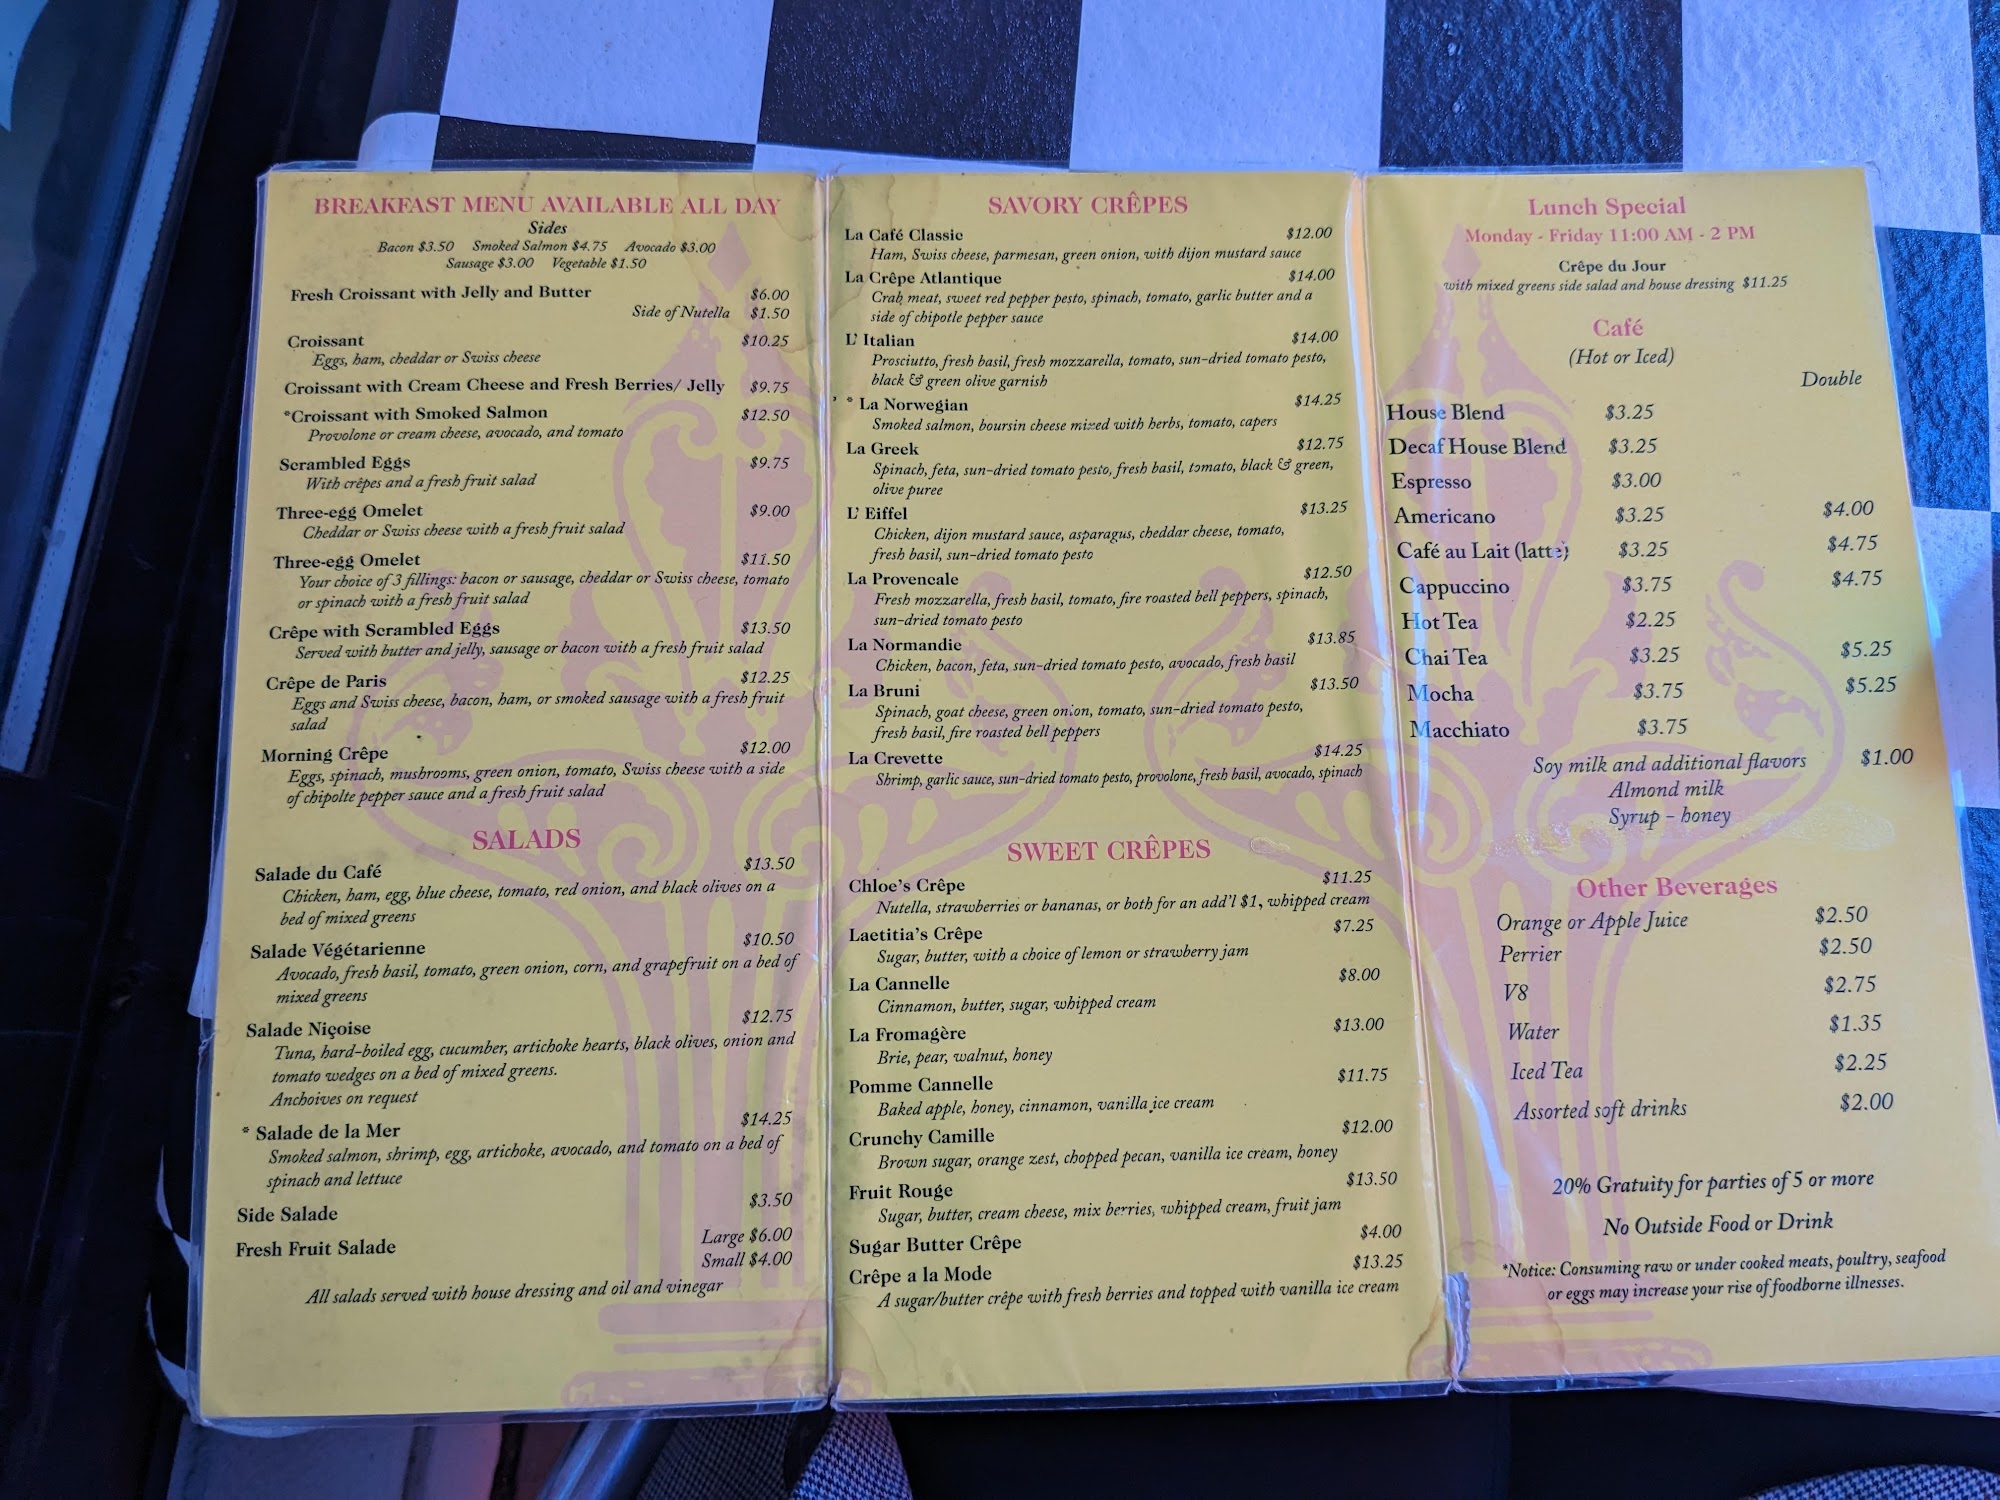 BREAKFAST MENU AVAILABLE ALL DAY
Sides
Bacon $3.50 Smoked Salmon $4.75 Avocado $3.00
Sausage $3.00 Vegetable $1.50
Fresh Croissant with Jelly and Butter $6.00
Side of Nutella $1.50
Croissant $10.25
Eggs, ham, cheddar or Swiss cheese
Croissant with Cream Cheese and Fresh Berries/ Jelly $9.75
*Croissant with Smoked Salmon $12.50
Provolone or cream cheese, avocado, and tomato
Scrambled Eggs $9.75
With crêpes and a fresh fruit salad
Three-egg Omelet $9.00
Cheddar or Swiss cheese with a fresh fruit salad
Three-egg Omelet $11.50
Your choice of 3 fillings: bacon or sausage, cheddar or Swiss cheese, tomato
or spinach with a fresh fruit salad
Crêpe with Scrambled Eggs $13.50
Served with butter and jelly, sausage or bacon with a fresh fruit salad
Crêpe de Paris $12.25
Eggs and Swiss cheese, bacon, ham, or smoked sausage with a fresh fruit
salad
Morning Crêpe $12.00
Eggs, spinach, mushrooms, green onion, tomato, Swiss cheese with a side
of chipolte pepper sauce and a fresh fruit salad
SALADS
Salade du Café $13.50
Chicken, ham, egg, blue cheese, tomato, red onion, and black olives on a
bed of mixed greens
Salade Végétarienne $10.50
Avocado, fresh basil, tomato, green onion, corn, and grapefruit on a bed of
mixed greens
Salade Niçoise $12.75
Tuna, hard-boiled egg, cucumber, artichoke hearts, black olives, onion and
tomato wedges on a bed of mixed greens.
Anchoives on request
* Salade de la Mer $14.25
Smoked salmon, shrimp, egg, artichoke, avocado, and tomato on a bed of
spinach and lettuce
Side Salade $3.50
Fresh Fruit Salade Large $6.00
Small $4.00
All salads served with house dressing and oil and vinegar
SAVORY CRÊPES
La Café Classic $12.00
Ham, Swiss cheese, parmesan, green onion, with dijon mustard sauce
La Crêpe Atlantique $14.00
Crab meat, sweet red pepper pesto, spinach, tomato, garlic butter and a
side of chipotle pepper sauce
L' Italian $14.00
Prosciutto, fresh basil, fresh mozzarella, tomato, sun-dried tomato pesto,
black & green olive garnish
* La Norwegian $14.25
Smoked salmon, boursin cheese mixed with herbs, tomato, capers
La Greek $12.75
Spinach, feta, sun-dried tomato pesto, fresh basil, tomato, black & green,
olive puree
L' Eiffel $13.25
Chicken, dijon mustard sauce, asparagus, cheddar cheese, tomato,
fresh basil, sun-dried tomato pesto
La Provencale $12.50
Fresh mozzarella, fresh basil, tomato, fire roasted bell peppers, spinach,
sun-dried tomato pesto
La Normandie $13.85
Chicken, bacon, feta, sun-dried tomato pesto, avocado, fresh basil
La Bruni $13.50
Spinach, goat cheese, green onion, tomato, sun-dried tomato pesto,
fresh basil, fire roasted bell peppers
La Crevette $14.25
Shrimp, garlic sauce, sun-dried tomato pesto, provolone, fresh basil, avocado, spinach
SWEET CRÊPES
Chloe's Crêpe $11.25
Nutella, strawberries or bananas, or both for an add'l $1, whipped cream
Laetitia's Crêpe $7.25
Sugar, butter, with a choice of lemon or strawberry jam
La Cannelle $8.00
Cinnamon, butter, sugar, whipped cream
La Fromagère $13.00
Brie, pear, walnut, honey
Pomme Cannelle $11.75
Baked apple, honey, cinnamon, vanilla ice cream
Crunchy Camille $12.00
Brown sugar, orange zest, chopped pecan, vanilla ice cream, honey
Fruit Rouge $13.50
Sugar, butter, cream cheese, mix berries, whipped cream, fruit jam
Sugar Butter Crêpe $4.00
Crêpe a la Mode $13.25
A sugar/butter crêpe with fresh berries and topped with vanilla ice cream
Lunch Special
Monday - Friday 11:00 AM - 2 PM
Crêpe du Jour
with mixed greens side salad and house dressing $11.25
Café
(Hot or Iced)
Double
House Blend $3.25
Decaf House Blend $3.25
Espresso $3.00
Americano $3.25 $4.00
Café au Lait (latte) $3.25 $4.75
Cappuccino $3.75 $4.75
Hot Tea $2.25
Chai Tea $3.25 $5.25
Mocha $3.75 $5.25
Macchiato $3.75
Soy milk and additional flavors $1.00
Almond milk
Syrup - honey
Other Beverages
Orange or Apple Juice $2.50
Perrier $2.50
V8 $2.75
Water $1.35
Iced Tea $2.25
Assorted soft drinks $2.00
20% Gratuity for parties of 5 or more
No Outside Food or Drink
*Notice: Consuming raw or under cooked meats, poultry, seafood
or eggs may increase your rise of foodborne illnesses.